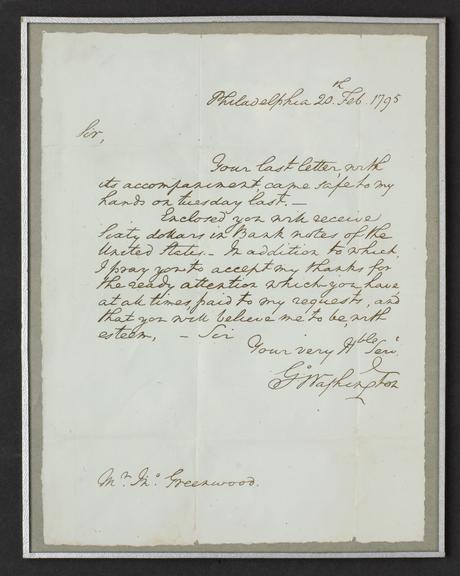 Philadelphia 20th Feb. 1795
Sir,
Your last letter, with
its accompaniment, came safe to my
hands on tuesday last. —
Enclosed you will receive
sixty dollars in Bank notes of the
United States. — In addition to which,
I pray you to accept my thanks for
the ready attention which you have
at all times paid to my requests, and
that you will believe me to be, with
esteem, — Sir
Your very Hble Serv.
Go Washington
Mr. Jno. Greenwood.